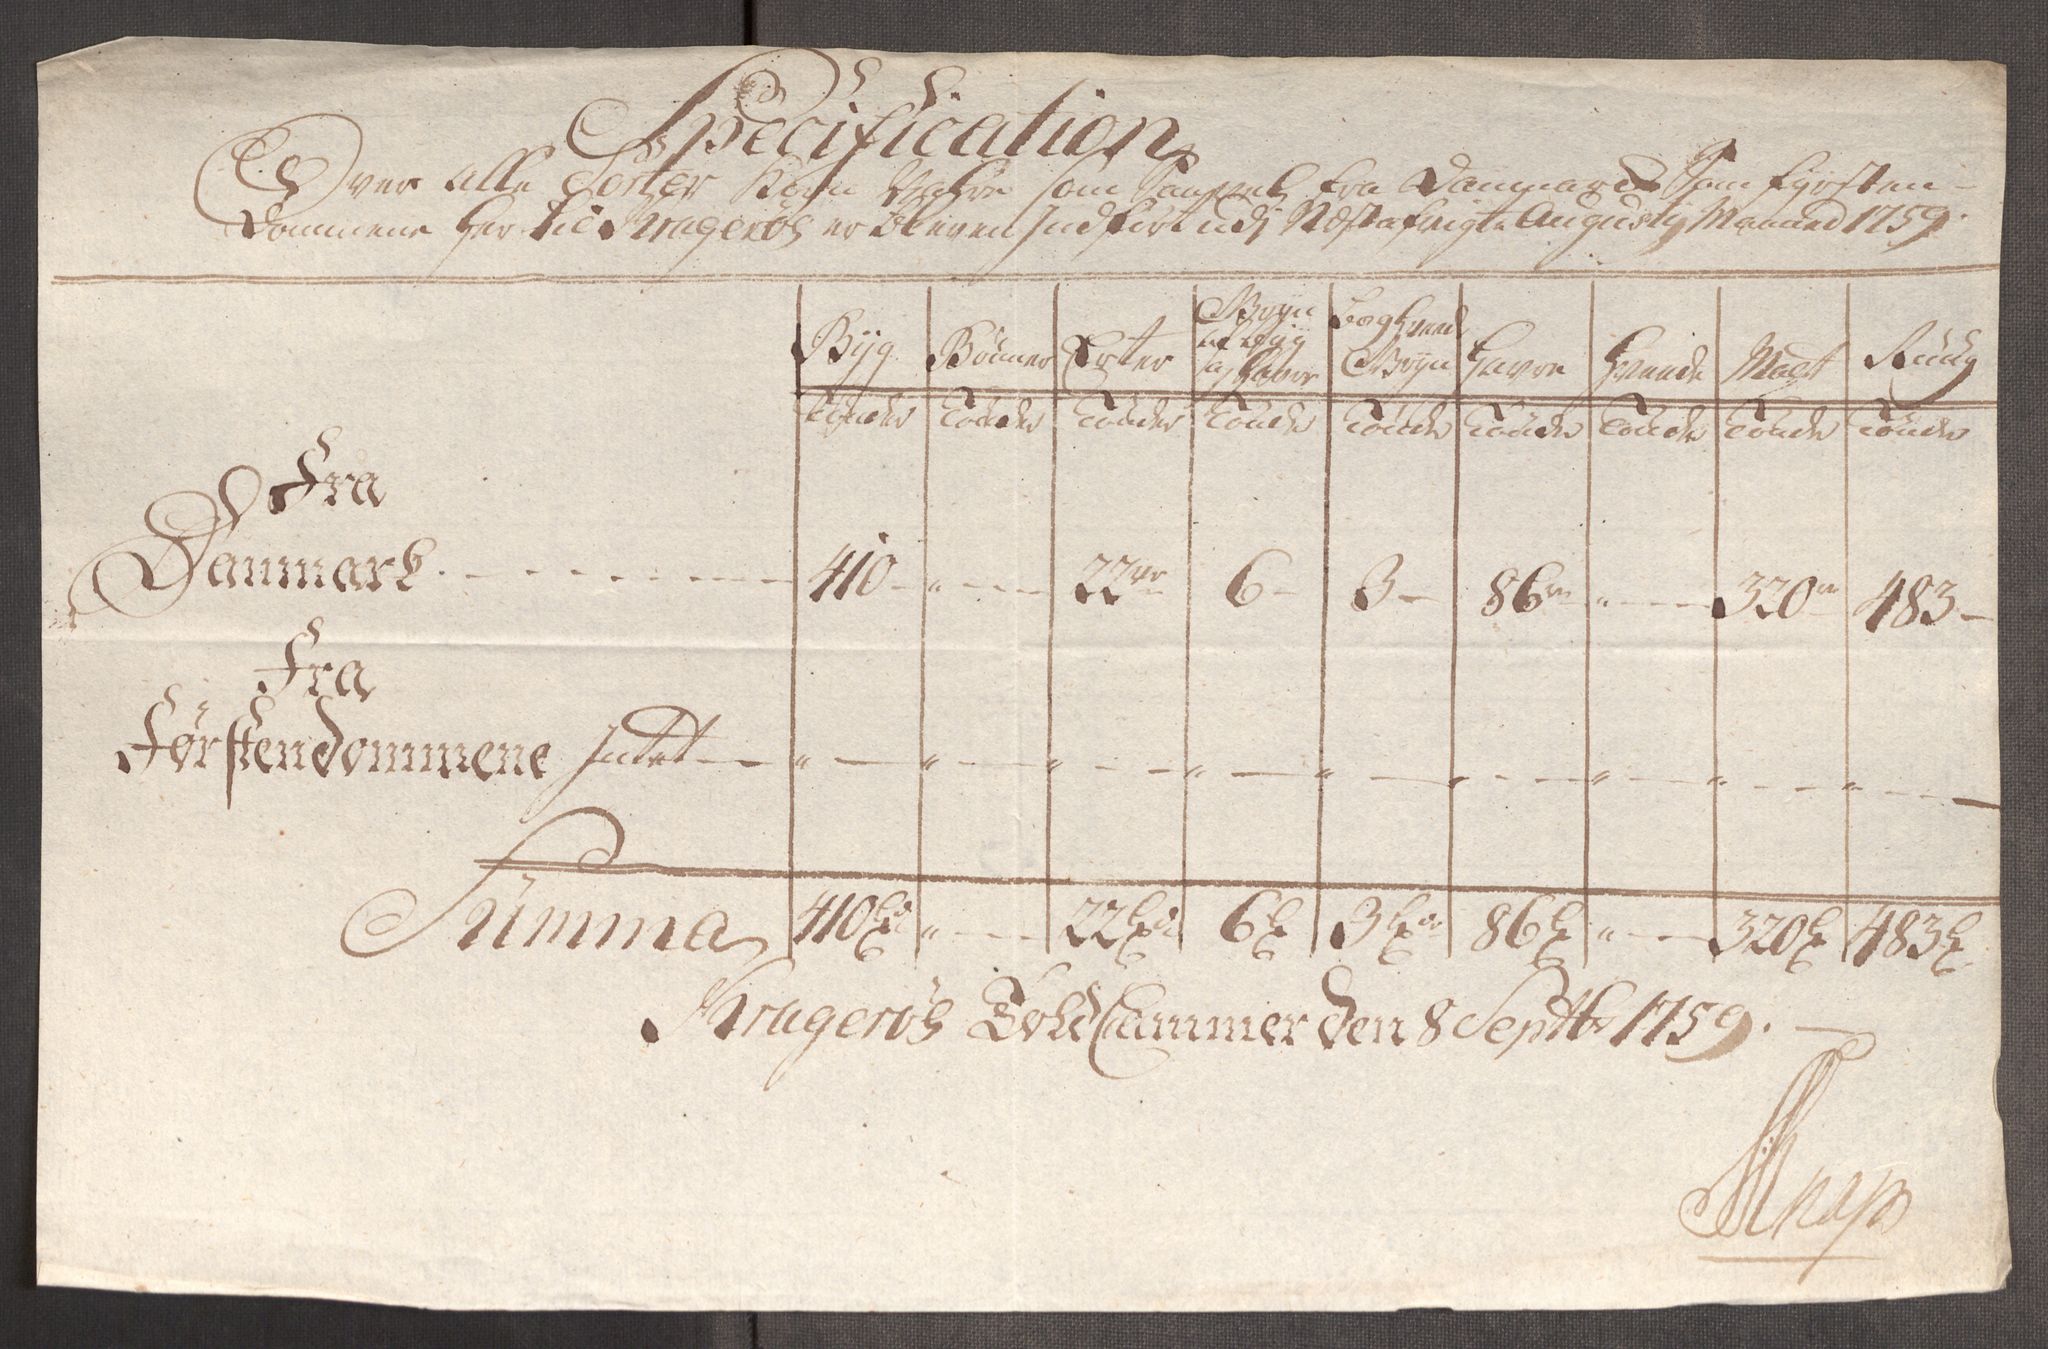 Specification
Over alle Sorter Korn Vahre som saavel fra Danmarck som Fyrsten-
dommene her til Kragerøe er bleven Indført udi Næstafvigte Augusty Maaned 1759.
Byg Bönner Erter Gryn af Byg og Havre Boghvede Gryn Havre Hvede Malt Rug
Tönder Tönder Tönder Tönder Tönder Tönder Tönder Tönder Tönder
Fra
Danmark 410 " 22 6 3 86 " 320 483
Fra
Førstendommene Intet " " " " " " " " "
Summa 410 " 22 6 3 86 " 320 483
Kragerøe Told Cammer den 8 Septbr 1759.